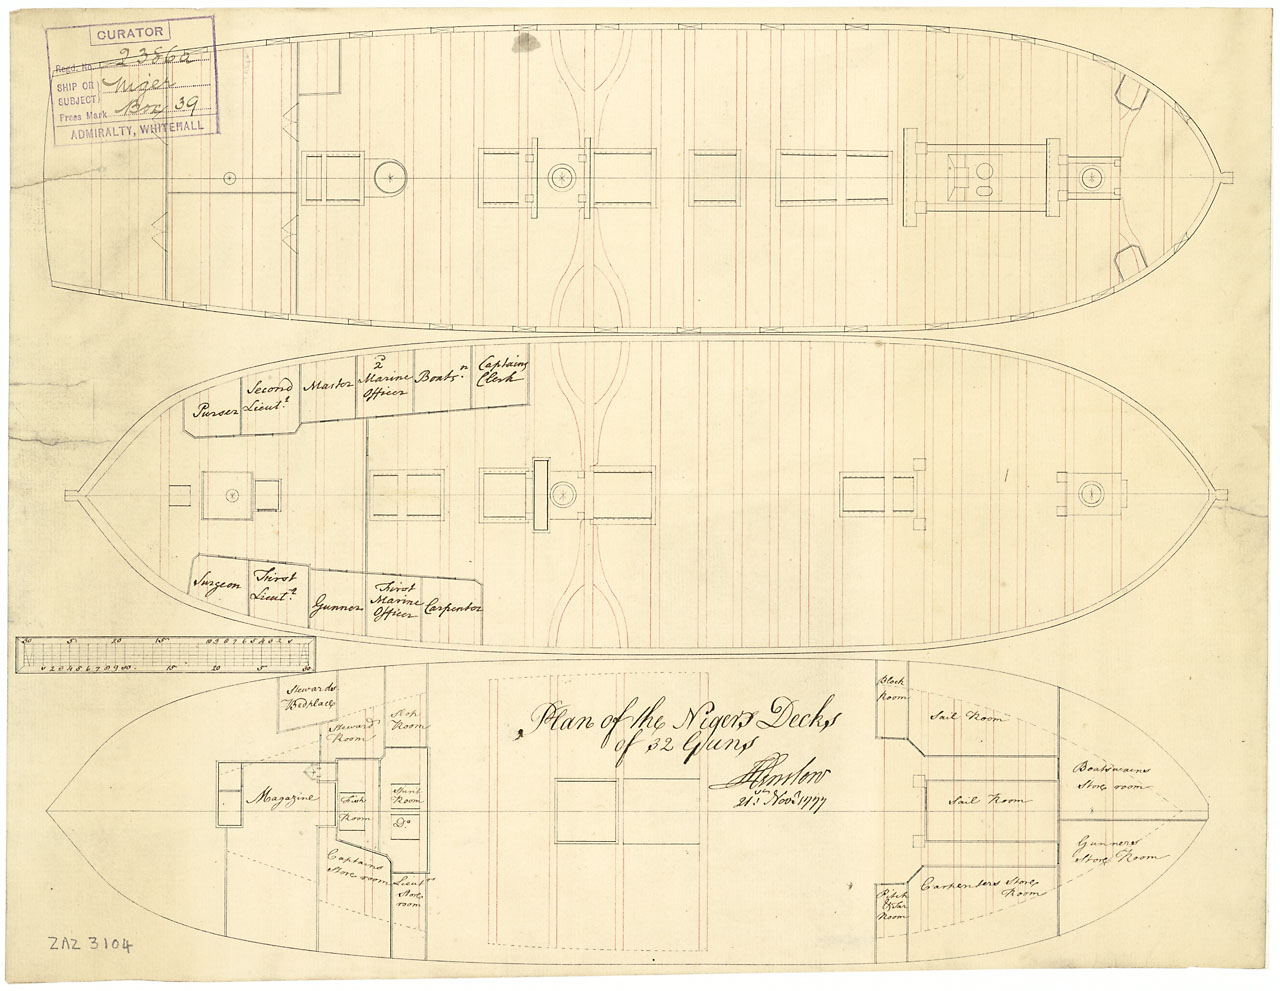 CURATOR
Regd. No. 2386a
SHIP OR SUBJECT Niger
Press Mark Box 39
ADMIRALTY, WHITEHALL
Purser
Second Lieut.t
Master
2 Marine Officer
Boats.n
Captains Clerk
Surgeon
First Lieut.t
Gunner
First Marine Officer
Carpenter
Stewards
Bedplace
Steward
Room
Magazine
Fish
Room
D.o
Captains
Store room
Lieut.ts
Store
room
Plan of the Nigers Decks
of 32 Guns
21.st Nov.r 1777
Block
Room
Sail Room
Sail Room
Boatswains
Store room
Gunners
Store Room
Carpenters Store
Room
Pitch
& Tar
Room
ZAZ 3104